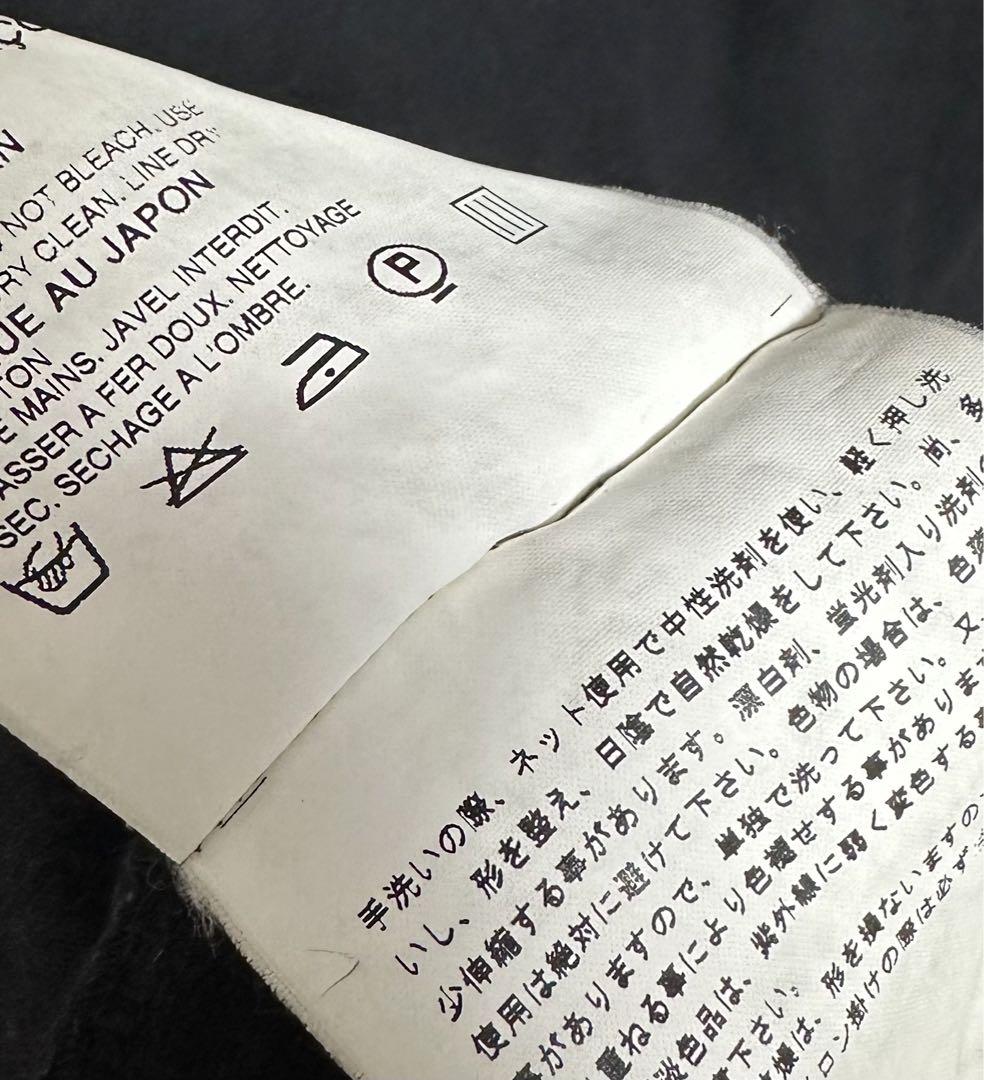 AN
NOT BLEACH. USE
RY CLEAN. LINE DRY
UE AU JAPON
TON
E MAINS. JAVEL INTERDIT.
ASSER A FER DOUX. NETTOYAGE
SEC. SECHAGE A L'OMBRE.
P
手洗いの際、ネット使用で中性洗剤を使い、軽く押し洗
いし、形を整え、日陰で自然乾燥をして下さい。尚、多
少伸縮する事があります。漂白剤、蛍光剤入り洗剤の
使用は絶対に避けて下さい。色物の場合は、色落
事がありますので、単独で洗って下さい。又、
重ねる事により色褪せする事があります
淡色品は、紫外線に弱く変色する事
下さい。
燥は、形を損ないますの
ロン掛けの際は必ず